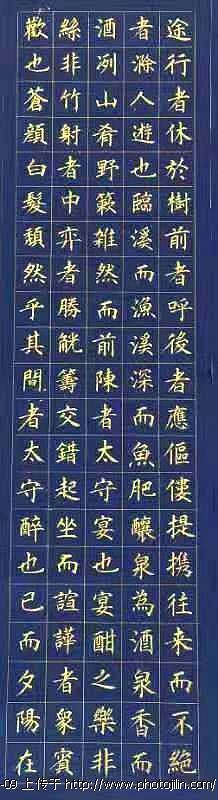 途行者休於樹前者呼後者應傴僂提携往来而不絕
者滁人遊也臨溪而漁溪深而魚肥釀泉為酒泉香而
酒冽山肴野蔌雜然而前陳者太守宴也宴酣之樂非
絲非竹射者中弈者勝觥籌交錯起坐而諠譁者衆賓
歡也蒼顔白髮頽然乎其間者太守醉也已而夕陽在
-09 上传于 http://www.photojilin.com/